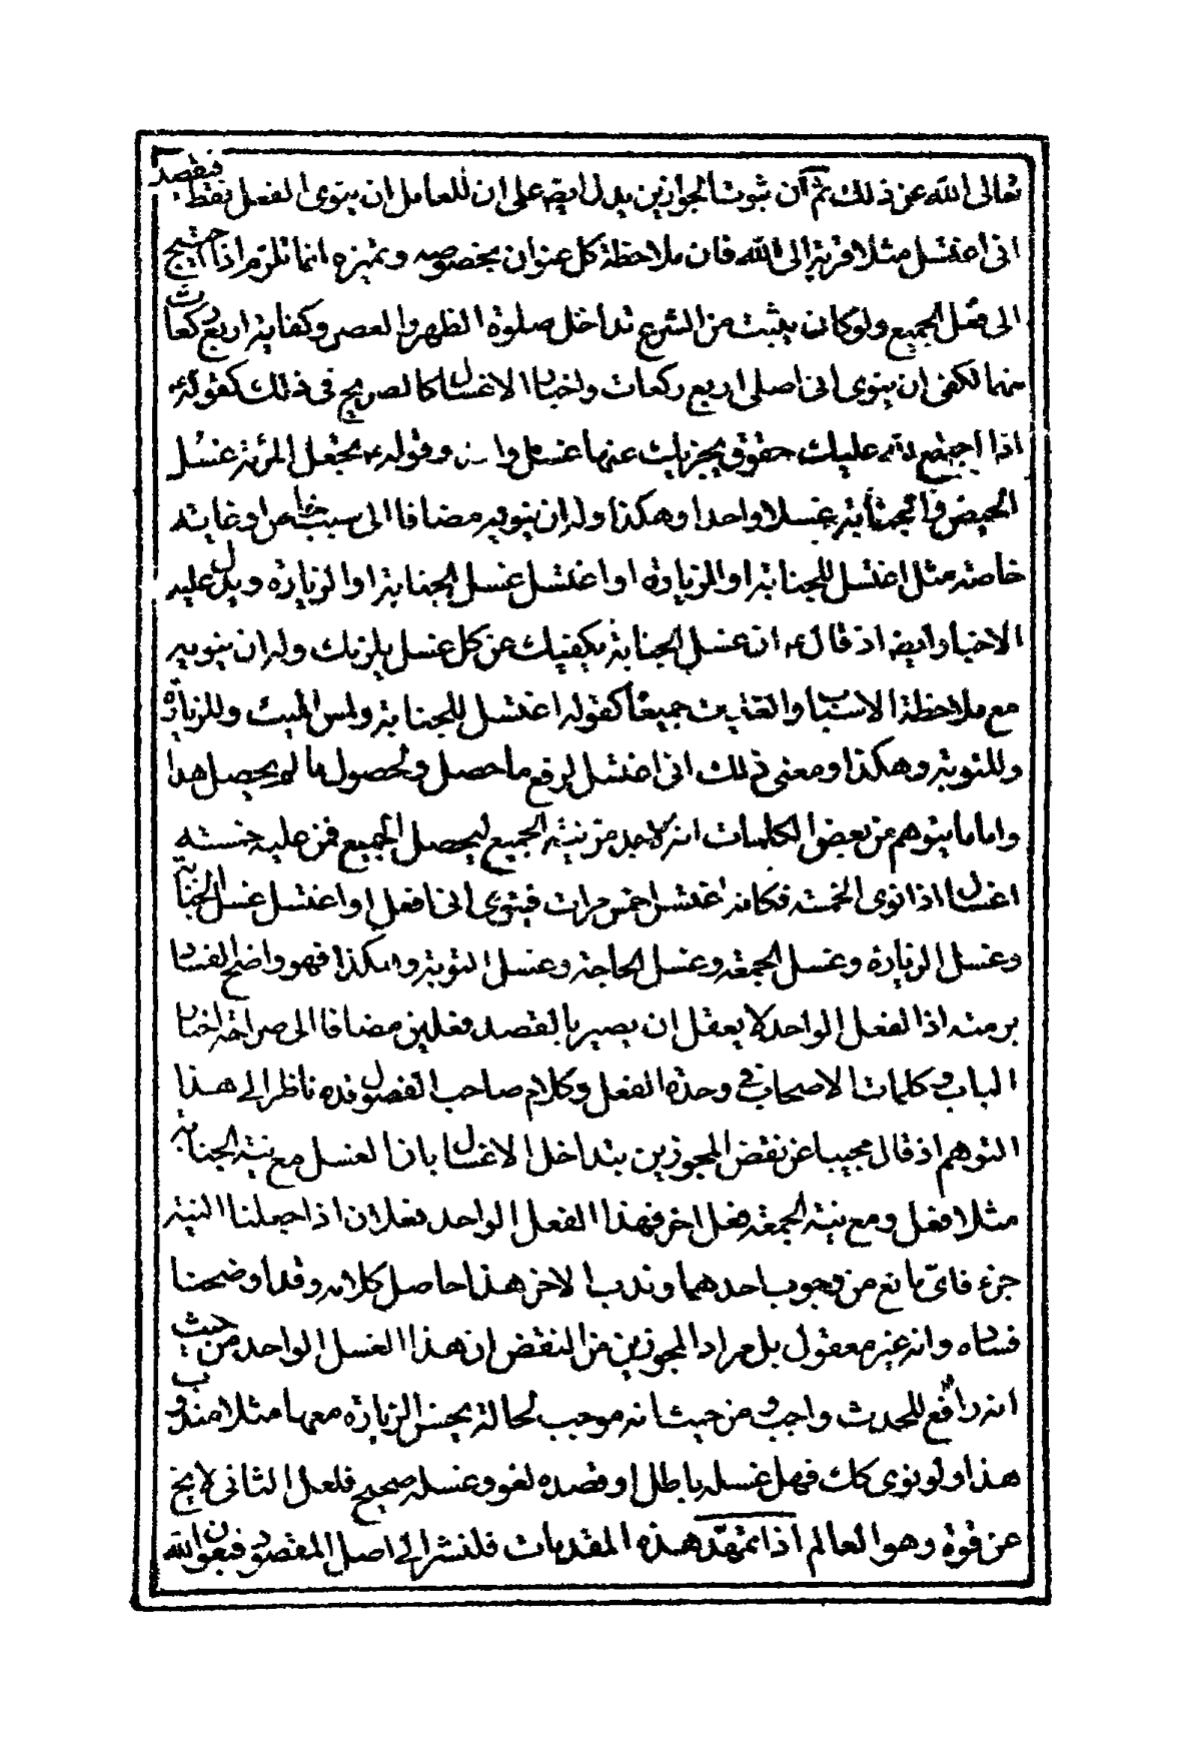 تعالى الله عن ذلك ثم ان ثبوت الجوازين يدل ايضه على ان للعامل ان ينوى الفعل فقط فيقصد
انى اغتسل مثلا قربة الى الله فان ملاحظة كل عنوان بخصوصه وتميزه انما تلزم اذا احتيج
الى فعل الجميع ولو كان يثبت من الشرع تداخل صلوة الظهر والعصر وكفاية اربع ركعات
منهما لكفى ان ينوى انى اصلى اربع ركعات واخبار الاغسال كالصريح فى ذلك كقوله ع
اذا اجتمع لله عليك حقوق يجزيك عنها غسل واحد وقوله ع تجعل المرئة غسل
الحيض والجنابة غسلا واحدا وهكذا وله ان ينويه مضافا الى سبب خاص او غاية
خاصة مثل اغتسل للجنابة او للزيارة او اغتسل غسل الجنابة او الزيارة ويدل عليه
الاخبار ايضه اذ قال ع ان غسل الجنابة يكفيك عن كل غسل يلزمك وله ان ينويه
مع ملاحظة الاسباب والغايات جميعا كقوله اغتسل للجنابة ولمس الميت وللزيارة
وللتوبة وهكذا ومعنى ذلك انى اغتسل لرفع ما حصل ولحصول ما لم يحصل هذا
واما ما يتوهم من بعض الكلمات انه لابد من نية الجميع ليحصل الجميع فمن عليه خمسة
اغسال اذا نوى الخمسة فكانه اغتسل خمس مرات فينوى انى افعل او اغتسل غسل الجنابة
وغسل الزيارة وغسل الجمعة وغسل الحاجة وغسل التوبة وهكذا فهو واضح الفساد
برمته اذ الفعل الواحد لا يعقل ان يصير بالقصد فعلين مضافا الى صراحة اخبار
الباب وكلمات الاصحاب فى وحدة الفعل وكلام صاحب الفصول قده ناظر الى هذا
التوهم اذ قال مجيبا عن نقض المجوزين بتداخل الاغسال بان الغسل مع نية الجنابة
مثلا فعل ومع نية الجمعة فعل اخر فهذا الفعل الواحد فعلان اذا جعلنا النية
جزء فاى مانع من وجوب احدهما وندب الاخر هذا حاصل كلامه وقد اوضحنا
فساده وانه غير معقول بل مراد المجوزين من النقض ان هذا الغسل الواحد من حيث
انه رافع للحدث واجب ومن حيث انه موجب لحالة يحسن الزيارة معها مثلا مندوب
هذا ولو نوى كك فهل غسله باطل او قصده لغو وغسله صحيح فلعل الثانى لا يخ
عن قوة وهو العالم اذا تمهد هذه المقدمات فلنشر الى اصل المقصود فبعون الله